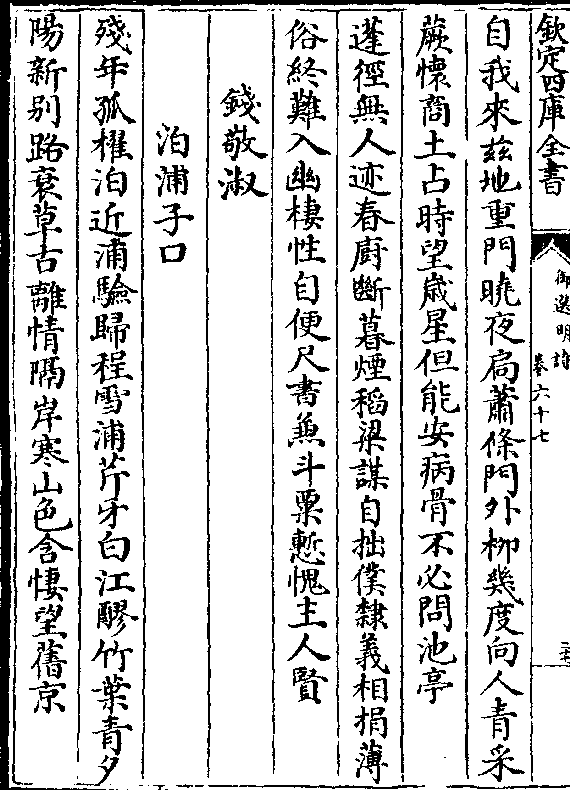 欽定四庫全書
御選明詩
卷六十七
自我來兹地重門曉夜扃蕭條門外柳幾度向人青采
蕨懷商土占時望嵗星但能安病骨不必問池亭
蓬徑無人迹春厨斷暮煙稻粱謀自拙僕隸義相捐薄
俗終難入幽棲性自便尺書兼斗粟慙愧主人賢
錢敬淑
泊浦子口
殘年孤櫂泊近浦驗歸程雪浦芹牙白江醪竹葉青夕
陽新别路衰草古離情隔岸寒山色含悽望舊京